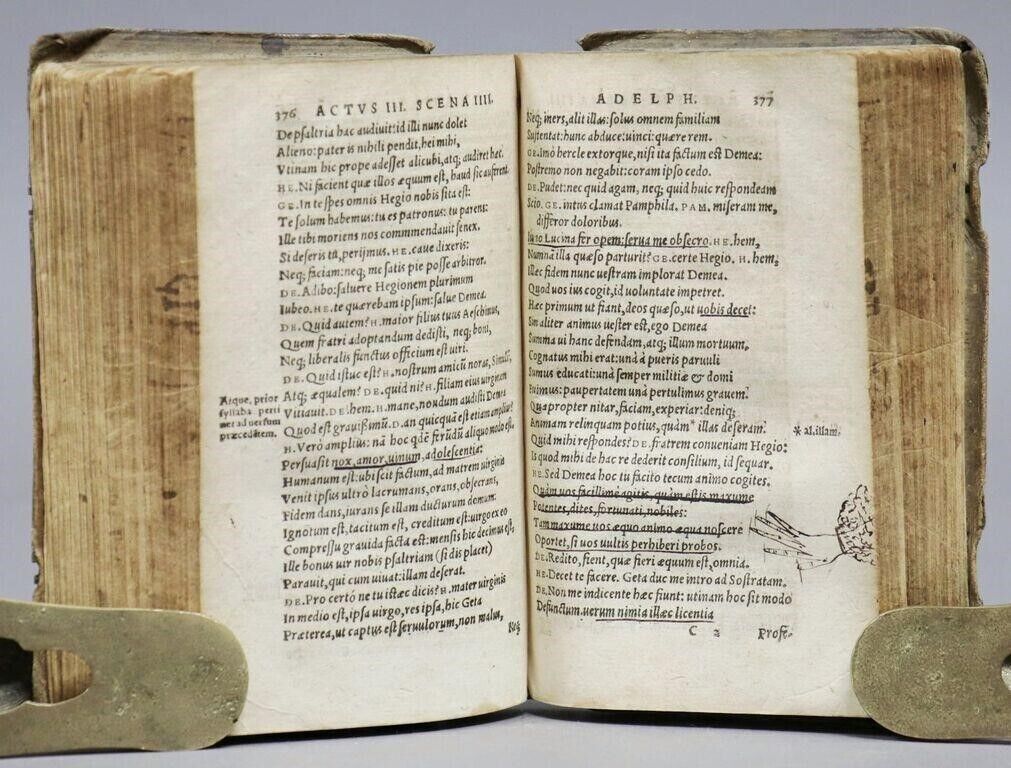 376 ACTVS III. SCENA IIII.
De psaltria hac audiuit: id illi nunc dolet
Alieno: pater is nihili pendit, hei mihi,
Vtinam hic prope adesset alicubi, atq; audiret hæc.
HE. Ni facient quæ illos æquum est, haud sic auferent.
GE. In te spes omnis Hegio nobis sita est:
Te solum habemus: tu es patronus: tu parens:
Ille tibi moriens nos commendauit senex.
Si deseris tu, perijmus. HE. caue dixeris:
Neq; faciam: neq; me satis pie posse arbitror.
DE. Adibo: saluere Hegionem plurimum
Iubeo. HE. te quærebam ipsum: salue Demea.
DE. Quid autem? H. maior filius tuus Aeschinus,
Quem fratri adoptandum dedisti, neq; boni,
Neq; liberalis functus officium est uiri.
DE. Quid istuc est? H. nostrum amicū noras, Simulū,
Atq; æqualem? DE. quid ni? H. filiam eius uirginem
Vitiauit. DE. hem. H. mane, nondum audisti Demea
Quod est grauissimū. D. an quicquā est etiam amplius?
H. Vero amplius: nā hoc qdē ferūdū aliquo modo est,
Persuasit nox, amor, uinum, adolescentia:
Humanum est: ubi scit factum, ad matrem uirginis
Venit ipsus ultrò lacrumans, orans, obsecrans,
Fidem dans, iurans se illam ducturum domum:
Ignotum est, tacitum est, creditum est: uirgo ex eo
Compressu grauida facta est: mensis hic decimus est,
Ille bonus uir nobis psaltriam (si dis placet)
Parauit, qui cum uiuat: illam deserat.
DE. Pro certò ne tu istæc dicis? H. mater uirginis
In medio est, ipsa uirgo, res ipsa, hic Geta
Præterea, ut captus est seruulorum, non malus,
Neq
Atque, prior
syllaba perti
net ad uersum
præcedētem.
ADELPH. 377
Neq; iners, alit illas: solus omnem familiam
Sustentat: hunc abduce: uinci: quære rem.
GE. Imò hercle extorque, nisi ita factum est Demea:
Postremo non negabit: coram ipso cedo.
DE. Pudet: nec quid agam, neq; quid huic respondeam
Scio. GE. intus clamat Pamphila. PAM. miseram me,
differor doloribus.
Iuno Lucina fer opem: serua me obsecro. HE. hem,
Numna illa quæso parturit? GE. certe Hegio. H. hem,
Illæc fidem nunc uestram implorat Demea.
Quod uos ius cogit, id uoluntate impetret.
Hæc primum ut fiant, deos quæso, ut uobis decet:
Sin aliter animus uester est, ego Demea
Summa ui hanc defendam, atq; illum mortuum.
Cognatus mihi erat: unà à pueris paruuli
Sumus educati: unà semper militiæ & domi
Fuimus: paupertatem unà pertulimus grauem.
Quapropter nitar, faciam, experiar: deniq;
Animam relinquam potius, quàm* illas deseram.
* al. illam.
Quid mihi respōdes? DE. fratrem conueniam Hegio:
Is quod mihi de hac re dederit consilium, id sequar.
HE. Sed Demea hoc tu facito tecum animo cogites.
Quàm uos facillime agitis, quàm estis maxume
Potentes, dites, fortunati, nobiles:
Tam maxume uos æquo animo æqua noscere
Oportet, si uos uultis perhiberi probos.
DE. Redito, fient, quæ fieri æquum est, omnia.
HE. Decet te facere. Geta duc me intro ad Sostratam.
DE. Non me indicente hæc fiunt: utinam hoc sit modo
Defunctum. uerum nimia illæc licentia
C 2 Profe-